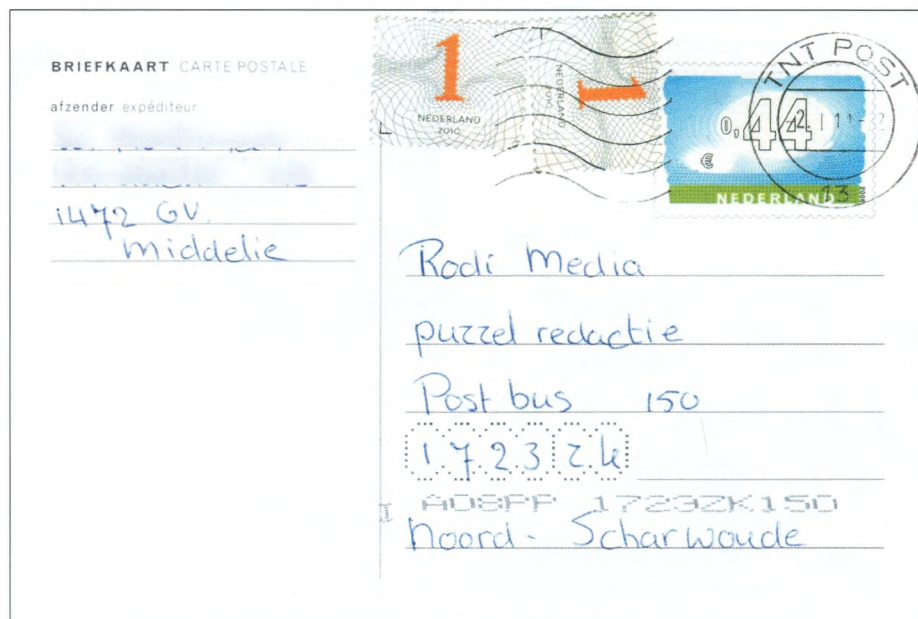 BRIEFKAART CARTE POSTALE
afzender expéditeur
1472 GV.
Middelie
1
NEDERLAND
2010
1
NEDERLAND
0,44
€
NEDERLAND
TNT POST
Rodi Media
puzzel redactie
Post bus 150
1723 ZK
A08PP 1723ZK150
Noord- Scharwoude